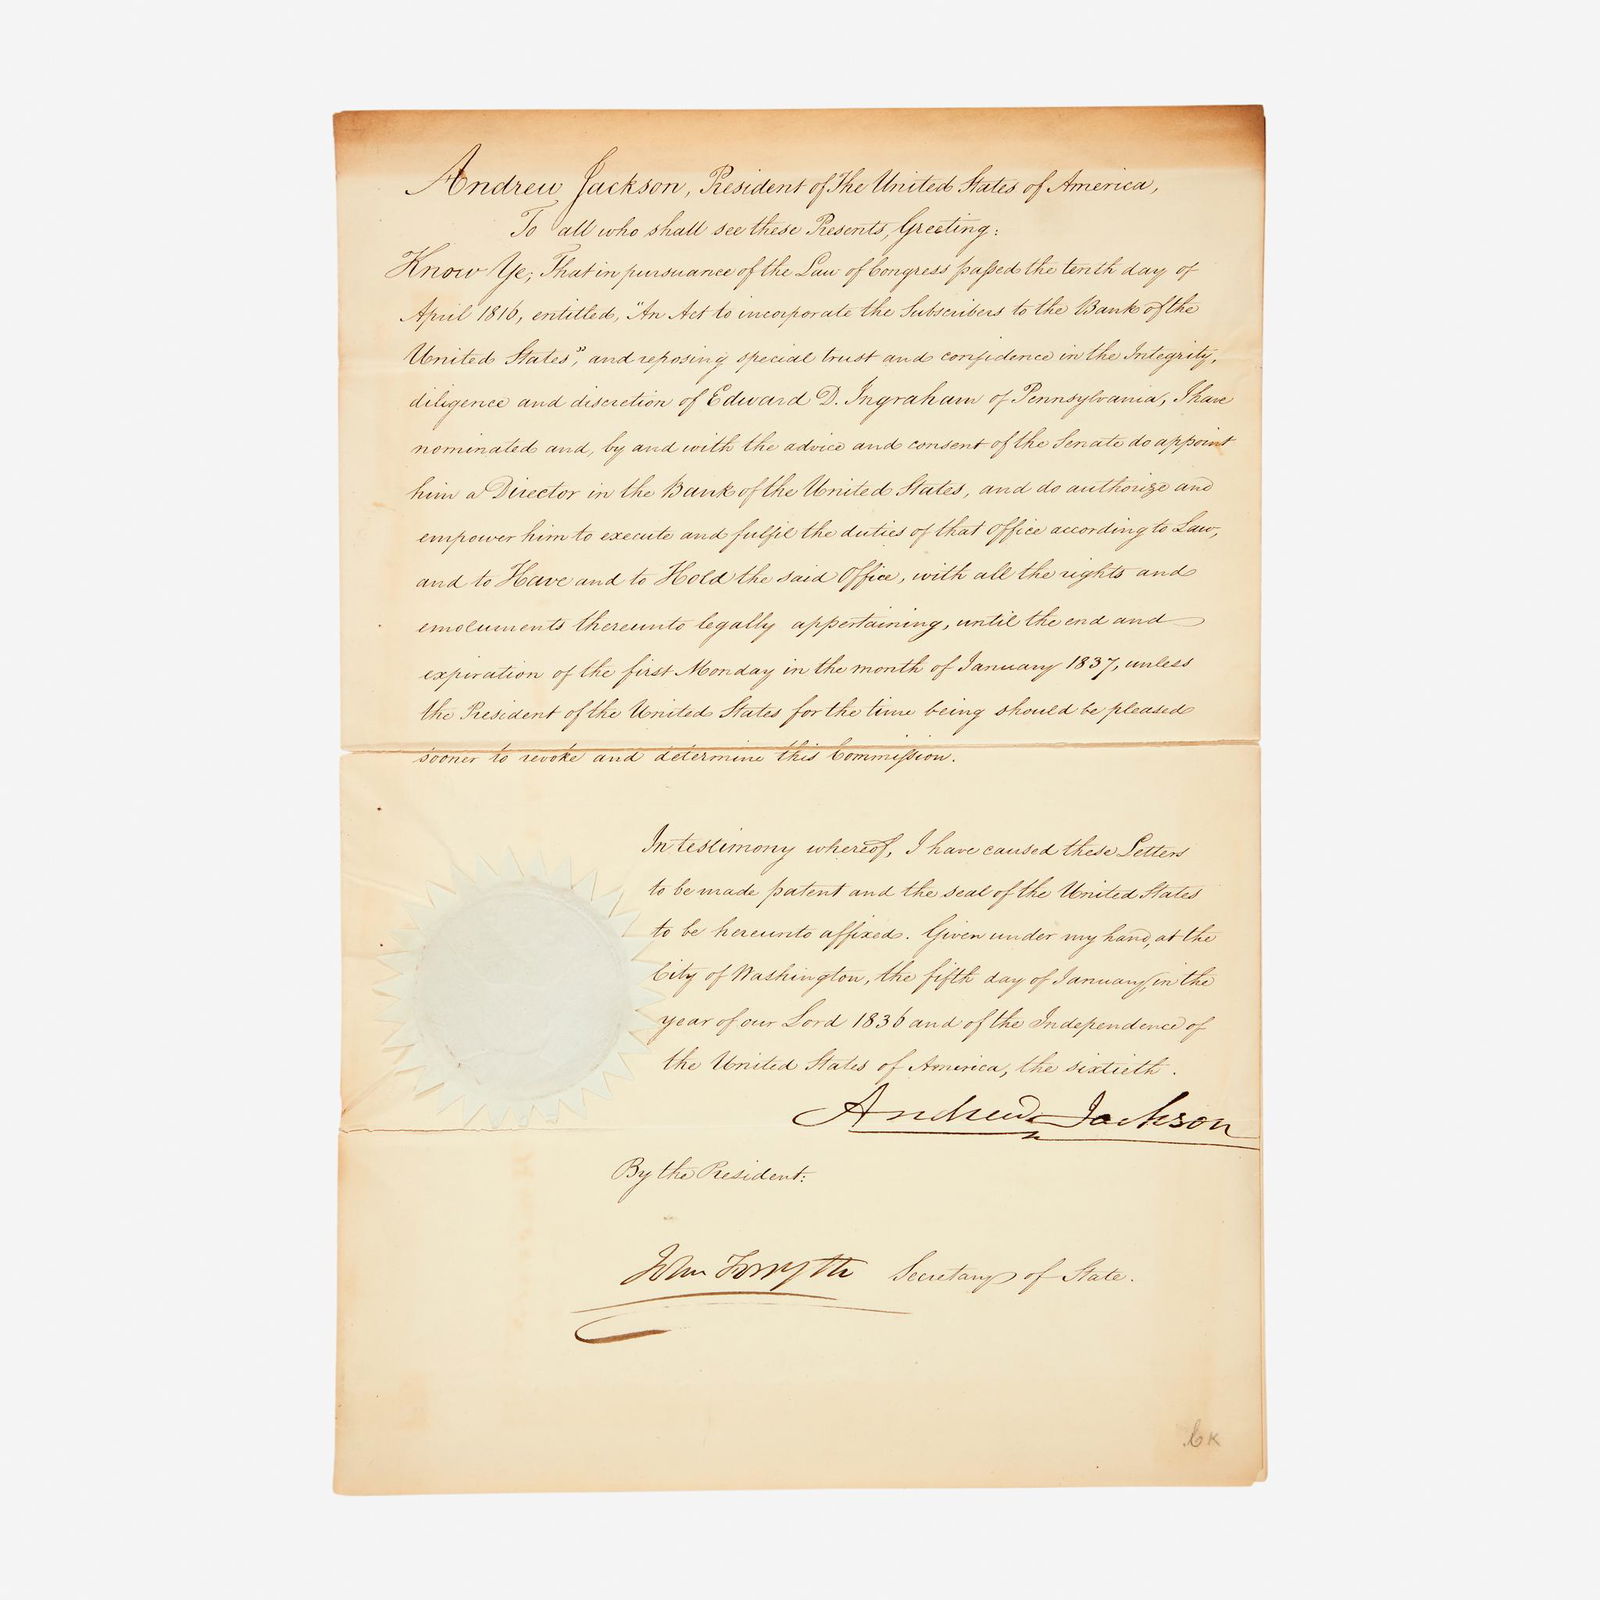 Andrew Jackson, President of The United States of America,
To all who shall see these Presents, Greeting:
Know Ye; That in pursuance of the Law of Congress passed the tenth day of
April 1816, entitled, "An Act to incorporate the Subscribers to the Bank of the
United States", and reposing special trust and confidence in the Integrity,
diligence and discretion of Edward D. Ingraham of Pennsylvania, I have
nominated and, by and with the advice and consent of the Senate do appoint
him a Director in the Bank of the United States, and do authorize and
empower him to execute and fulfil the duties of that Office according to Law,
and to Have and to Hold the said Office, with all the rights and
emoluments thereunto legally appertaining, until the end and
expiration of the first Monday in the month of January 1837, unless
the President of the United States for the time being should be pleased
sooner to revoke and determine this Commission.
In testimony whereof, I have caused these Letters
to be made patent and the seal of the United States
to be hereunto affixed. Given under my hand, at the
City of Washington, the fifth day of January, in the
year of our Lord 1836 and of the Independence of
the United States of America, the sixtieth.
Andrew Jackson
By the President:
John Forsyth Secretary of State.